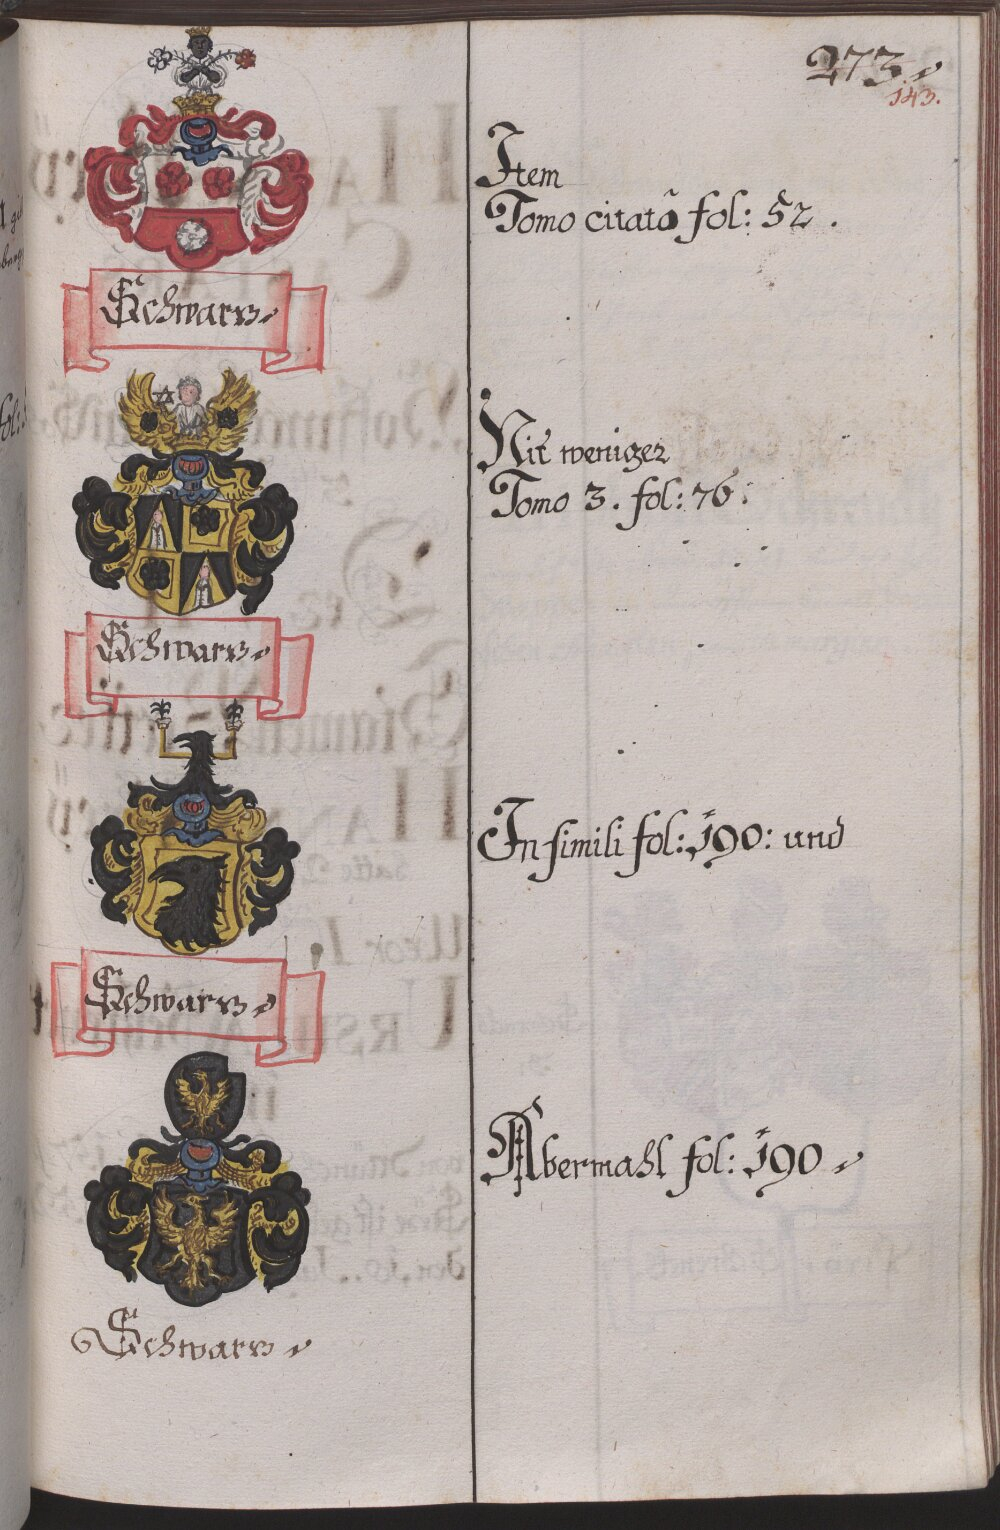 273.
143.
Item
Tomo citatõ fol: 52.
Schwarz
Nit weniger
Tomo 3. fol: 76.
Schwarz
In simili fol: 190: und
Schwarz
Abermahl fol: 190
Schwarz